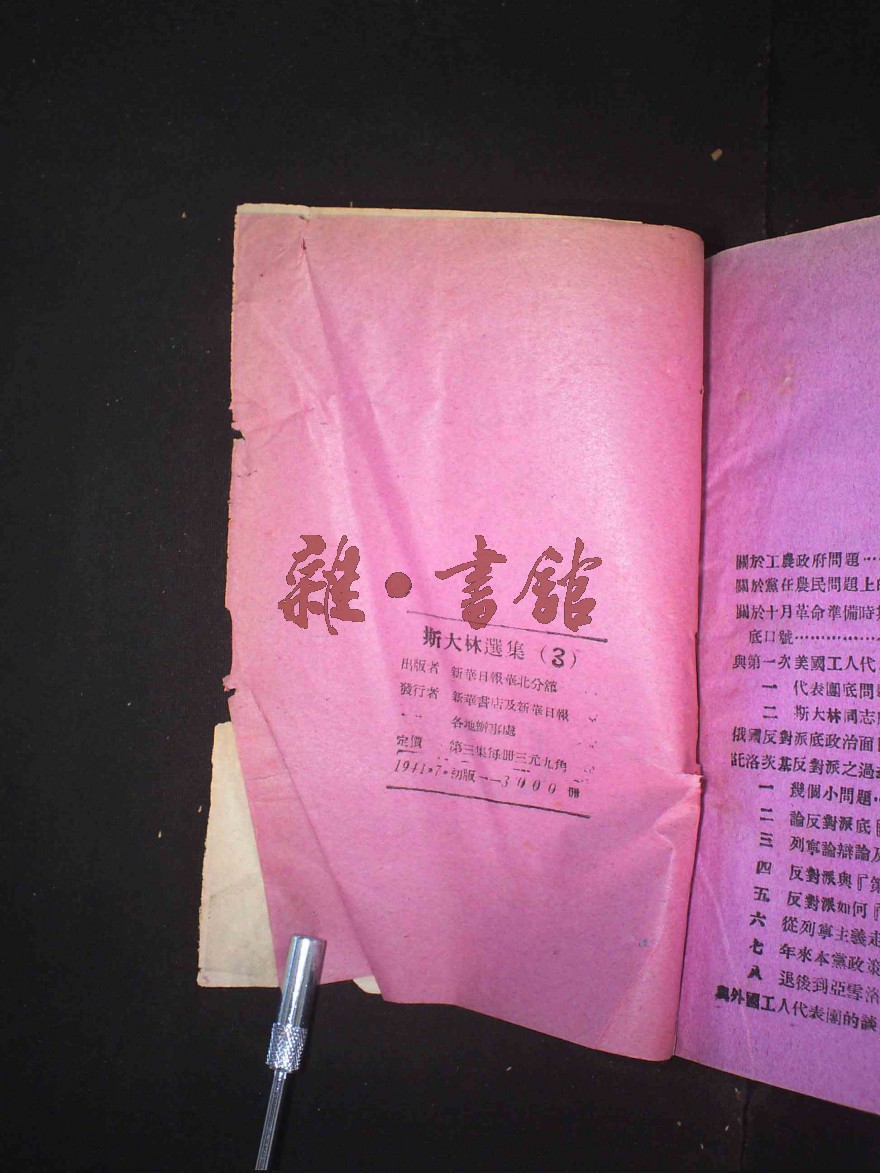 雜·書館
斯大林選集（3）
出版者 新華日報華北分館
發行者 新華書店及新華日報
各地辦事處
定價 第三集每冊三元九角
1941·7·初版——3000冊
關於工農政府問題……
關於黨在農民問題上的
關於十月革命準備時期
底口號……………
與第一次美國工人代表
一 代表團底問題
二 斯大林同志
俄國反對派底政治面
託洛茨基反對派之過去
一 幾個小問題…
二 論反對派底『
三 列寧論辯論及
四 反對派與『第
五 反對派如何『
六 從列寧主義走
七 年來本黨政策
八 退後到亞雪洛
與外國工人代表團的談